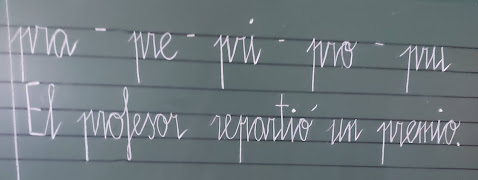 pra - pre - pri - pro - pru
El profesor repartió un premio.